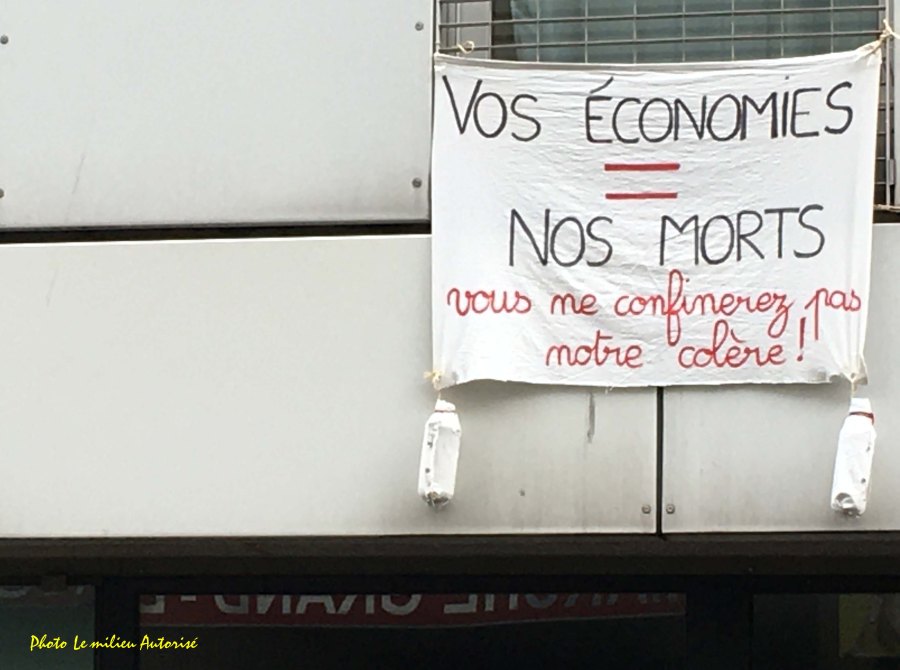 VOS ÉCONOMIES
=
NOS MORTS
vous ne confinerez pas
notre colère !
Photo Le milieu Autorisé